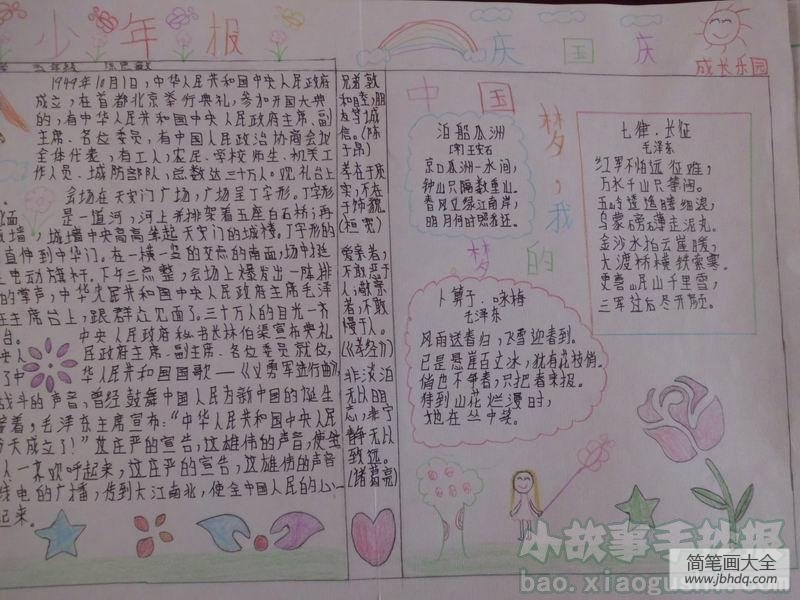 少年报
五年级
1949年10月1日,中华人民共和国中央人民政府
成立,在首都北京举行典礼,参加开国大典
的,有中华人民共和国中央人民政府主席、副
主席、各位委员,有中国人民政治协商会议
全体代表,有工人,农民、学校师生、机关工
作人员、城防部队,总数达三十万人。观礼台
会场在天安门广场,广场呈丁字形。丁字形
北面 是一道河,河上并排架着五座白石桥;再
城墙,城墙中央高高耸起天安门的城楼。丁字形的
直伸到中华门。在一横一竖的交点的南面,场中挺
电动旗杆。下午三点整,会场上爆发出一阵排
的掌声,中华人民共和国中央人民政府主席毛泽
在主席台上,跟群众见面了。三十万人的目光一齐
台。 中央人民政府秘书长林伯渠宣布典礼
央人 民政府主席、副主席、各位委员就位,
了中 华人民共和国国歌——《义勇军进行曲》
战斗的声音,曾经鼓舞中国人民为新中国的诞生
着,毛泽东主席宣布:“中华人民共和国中央人民
今天成立了!”这庄严的宣告,这雄伟的声音,使全
人一齐欢呼起来,这庄严的宣告,这雄伟的声音
线电的广播,传到大江南北,使全中国人民的心一
起来。
兄弟敦
和睦,朋
友笃诚
信。(陈
子昂)
孝在于质
实,不在
于饰貌。
(桓宽)
爱亲者,
不敢恶于
人;敬亲
者,不敢
慢于人。
(《孝经》)
非淡泊
无以明
志,非宁
静无以
致远。
(诸葛亮)
庆国庆
成长乐园
中国梦,我的梦
泊船瓜洲
[宋]王安石
京口瓜洲一水间,
钟山只隔数重山。
春风又绿江南岸,
明月何时照我还。
七律·长征
毛泽东
红军不怕远征难,
万水千山只等闲。
五岭逶迤腾细浪,
乌蒙磅礴走泥丸。
金沙水拍云崖暖,
大渡桥横铁索寒。
更喜岷山千里雪,
三军过后尽开颜。
卜算子·咏梅
毛泽东
风雨送春归,飞雪迎春到。
已是悬崖百丈冰,犹有花枝俏。
俏也不争春,只把春来报。
待到山花烂漫时,
她在丛中笑。
小故事手抄报
bao.xiaogushi
简笔画大全
www.jbhdq.com